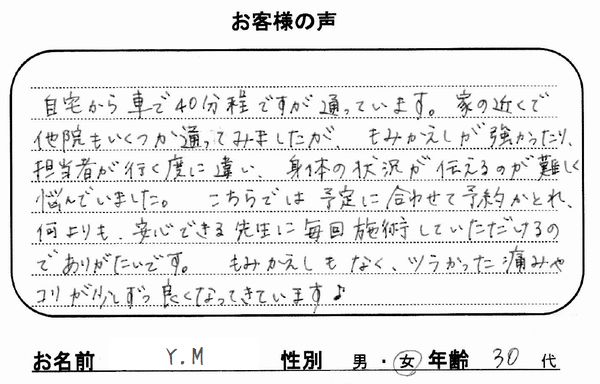 お客様の声
自宅から車で40分程ですが通っています。家の近くで
他院もいくつか通ってみましたが、もみかえしが強かったり、
担当者が行く度に違い、身体の状況が伝えるのが難しく
悩んでいました。こちらでは予定に合わせて予約がとれ、
何よりも、安心できる先生に毎回施術していただけるの
でありがたいです。もみかえしもなく、ツラかった痛みや
コリが少しずつ良くなってきています♪
お名前 Y.M 性別 男・女 年齢 30代